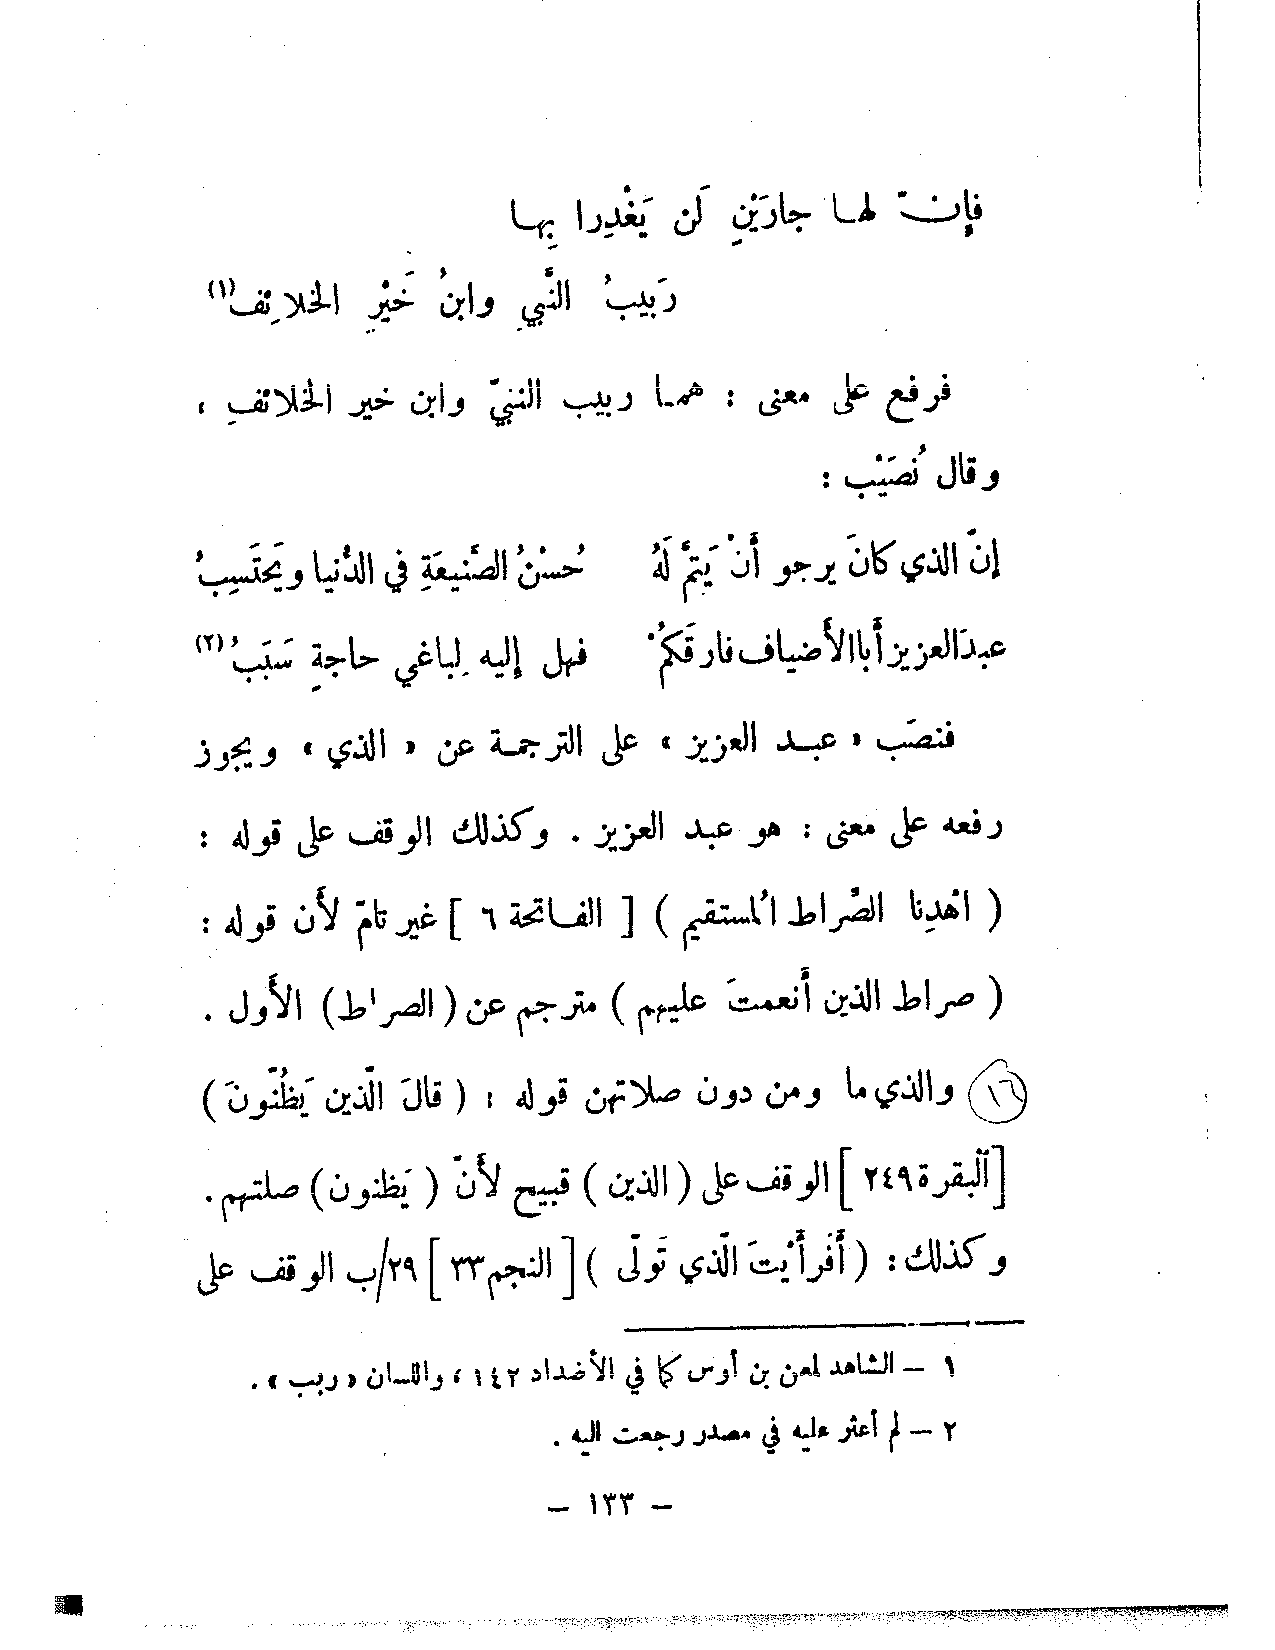 فإنّ لها جارَيْنِ لَن يَغْدِرا بِها
رَبيبُ النَّبيِ وابنُ خَيْرِ الخلائِف(١)
فرفع على معنى : هما ربيب النبيّ وابن خير الخلائفِ ،
وقال نُصَيْب :
إنّ الذي كانَ يرجو أنْ يَتمَّ لَهُ حُسْنُ الصَّنيعَةِ في الدُّنيا ويَحتَسِبُ
عبدَالعزيز أباالأضياف فارقَكُمْ فهل إليه لِباغي حاجةٍ سَبَبُ(٢)
فنصَب « عبد العزيز » على الترجمة عن « الذي » ويجوز
رفعه على معنى : هو عبد العزيز . وكذلك الوقف على قوله :
( اهْدِنا الصِّراط المُستقيم ) [ الفاتحة ٦ ] غير تامّ لأن قوله :
( صراط الذين أنعمتَ عليهم ) مترجم عن ( الصراط ) الأول .
(١٦) والذي ما ومن دون صلاتهن قوله : ( قالَ الّذين يَظُنّونَ )
[البقرة ٢٤٩ ] الوقف على ( الذين ) قبيح لأنّ ( يَظنون ) صلتهم .
وكذلك : ( أَفَرأَيْتَ الّذي تَولّى ) [ النجم ٣٣ ] ٢٩/ب الوقف على
١ – الشاهد لمعن بن أوس كما في الأضداد ١٤٢ ، واللسان « ربب » .
٢ – لم أعثر عليه في مصدر رجعت اليه .
– ١٣٣ –